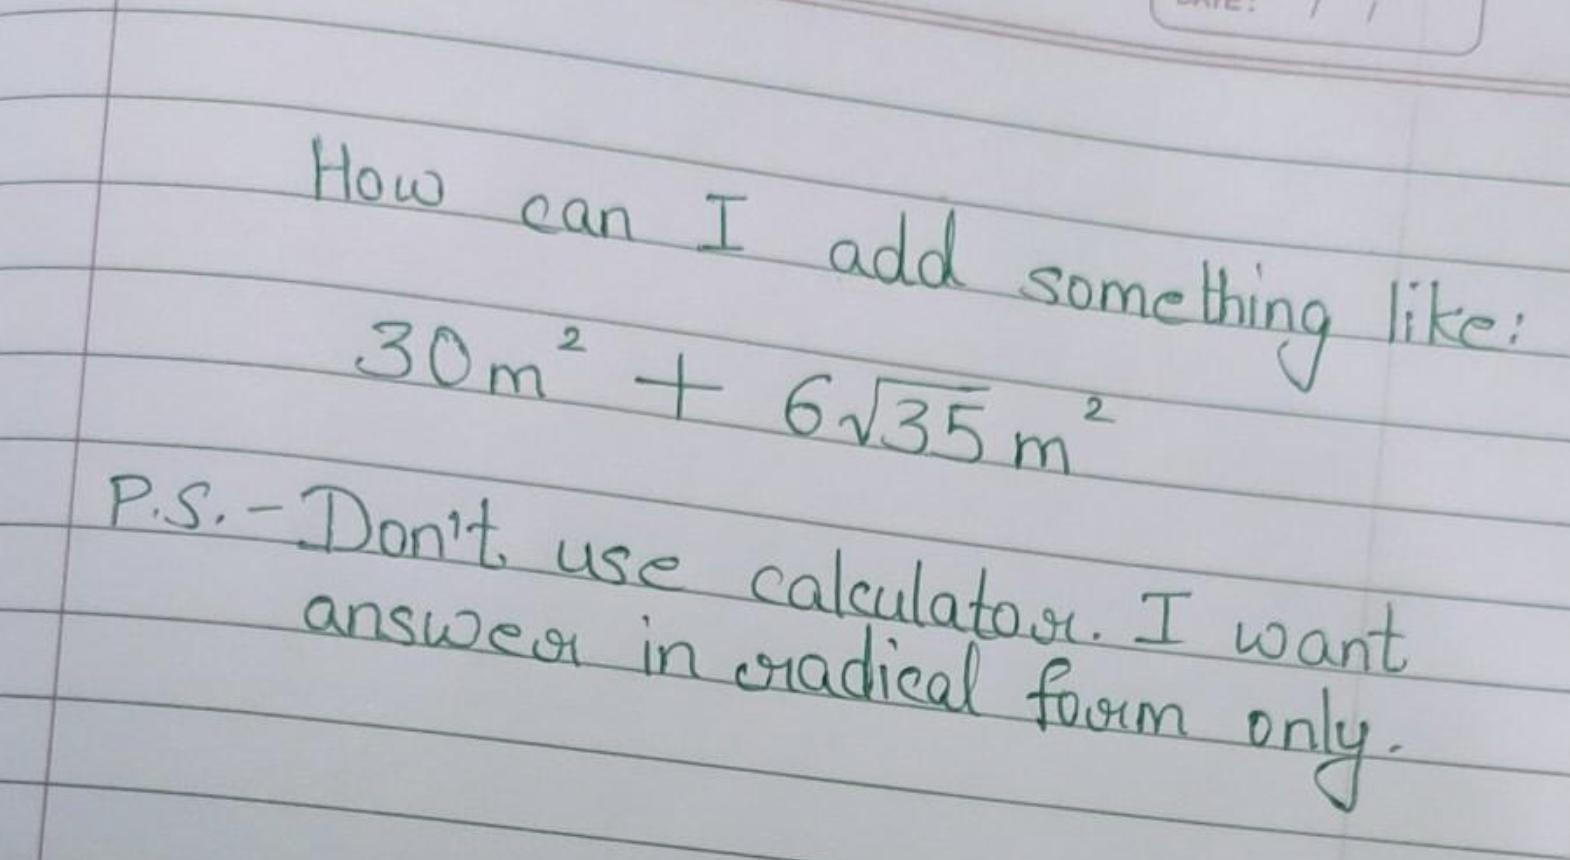 DATE: / /
How can I add something like:
30m² + 6√35 m²
P.S. - Don't use calculator. I want
answer in radical form only.